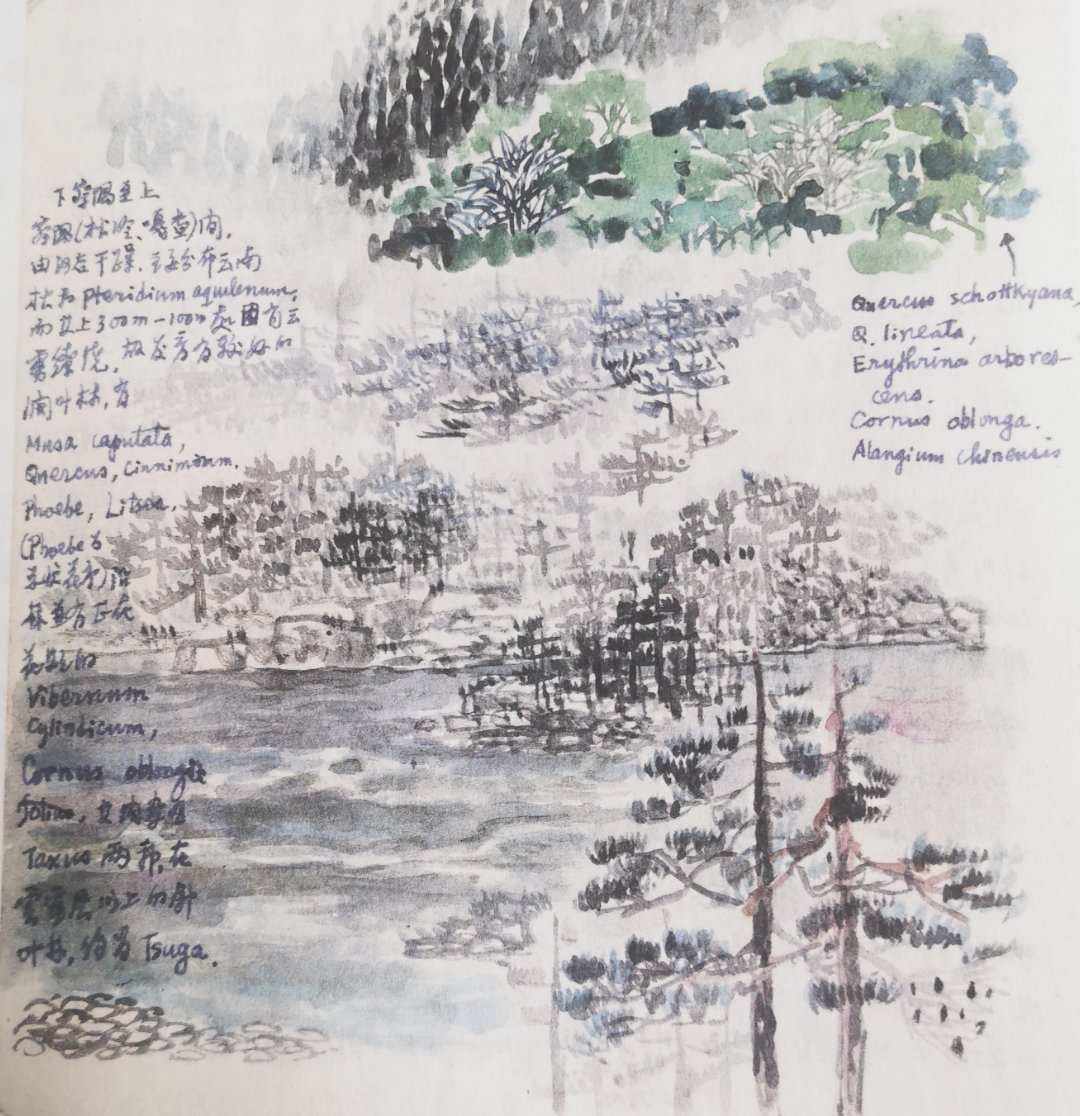 下察隅至上
察隅(松冷、嘎查)间,
由河谷干燥,主要分布云南
松及 Pteridium aquilenum,
而其上300m-100m处因有云
雾缭绕,故发育有较好的
阔叶林,有
Musa caputata,
Quercus, Cinnimomum.
Phoebe, Litsea.
(Phoebe
林垂有正在
花期的
Vibernum
Cylindicum,
Cornus oblonga
Taxus 两种,在
云雾层以上的针
叶林,约为 Tsuga.
Quercus schottkyana,
Q. lineata,
Erythrina arbores-
cens.
Cornus oblonga.
Alangium chinensis